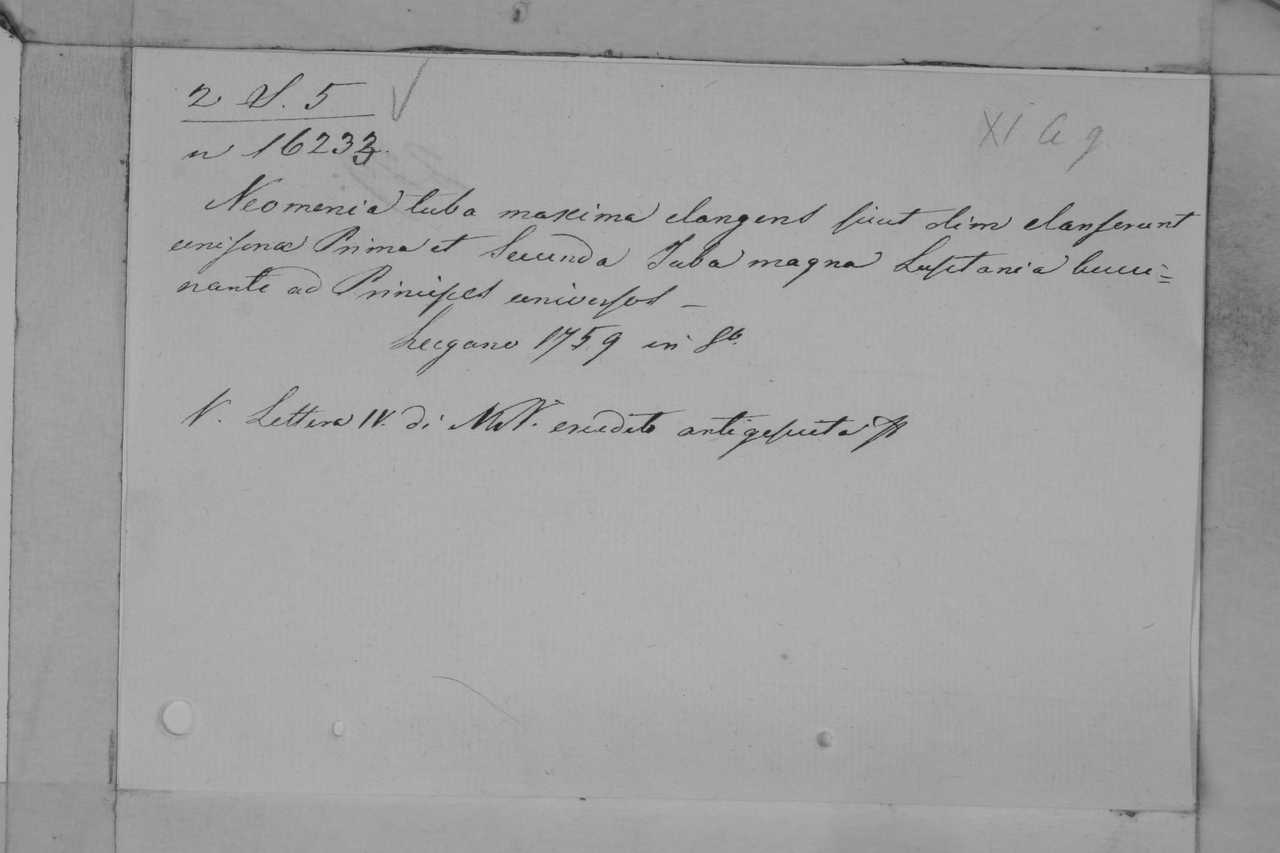 2 S. 5
XI A 9
n 16233
Neomenia tuba maxima clangens sicut olim clanserunt
unisonæ Prima et Secunda Tuba magna Lusitania bucci=
nante ad Principes universos —
Lugano 1759 in 8º.
V. Lettera IV. di M. N. erudito antigesuita